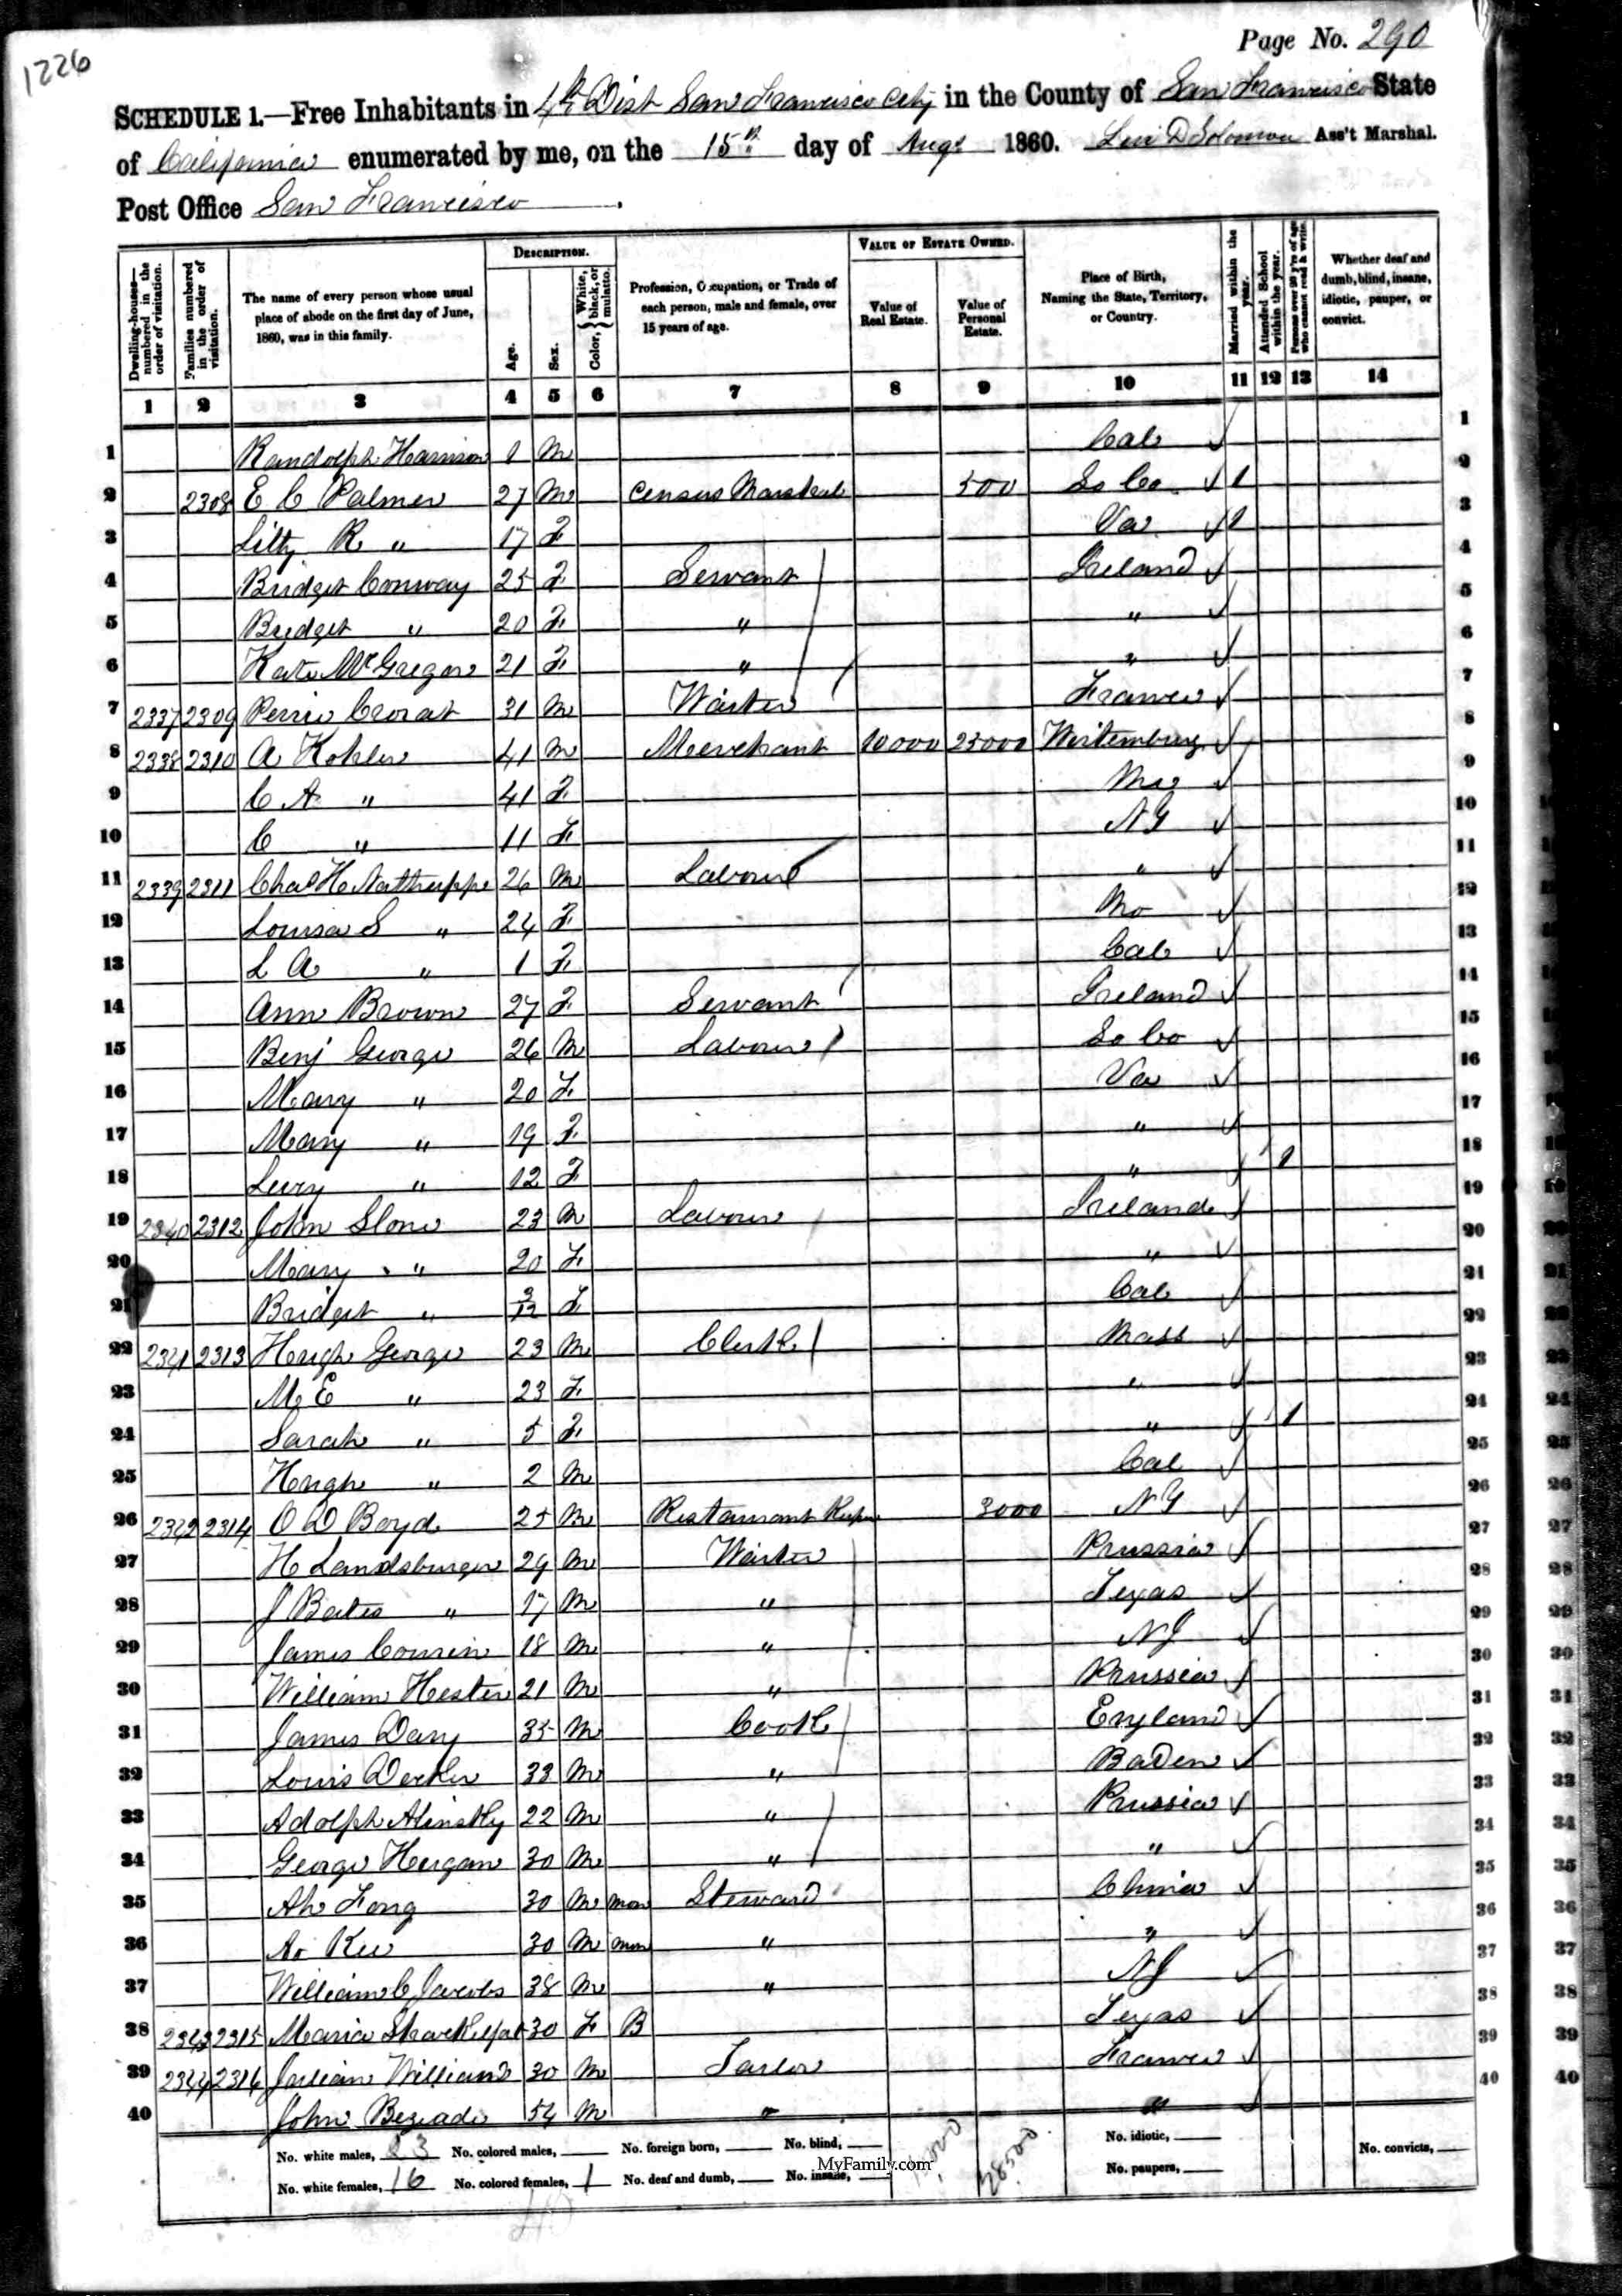 1226
Page No. 290
SCHEDULE 1.—Free Inhabitants in 4th Dist San Francisco City in the County of San Francisco State
of California enumerated by me, on the 15th day of Augt 1860. Levi D Solomon Ass't Marshal.
Post Office San Francisco.
DESCRIPTION. VALUE OF ESTATE OWNED.
Dwelling-houses—numbered in the order of visitation.
Families numbered in the order of visitation.
The name of every person whose usual place of abode on the first day of June, 1860, was in this family.
Age.
Sex.
Color, { White, black, or mulatto.
Profession, Occupation, or Trade of each person, male and female, over 15 years of age.
Value of Real Estate.
Value of Personal Estate.
Place of Birth, Naming the State, Territory, or Country.
Married within the year.
Attended School within the year.
Persons over 20 y'rs of age who cannot read & write.
Whether deaf and dumb, blind, insane, idiotic, pauper, or convict.
1 2 3 4 5 6 7 8 9 10 11 12 13 14
1 Randolph Harrison 1 M Cal 1
2 2308 E C Palmer 27 M Census Marshal 500 So Ca 1 2
3 R " 17 F Va 1 3
4 Bridget Conway 25 F Servant Ireland 4
5 Bridget " 20 F " " 5
6 Kate McGregor 21 F " " 6
7 2337 2309 Perrie Crorat 31 M Waiter France 7
8 2338 2310 A Kohler 41 M Merchant 10000 25000 Wirtemburg 8
9 C A " 41 F Me 9
10 C " 11 F N Y 10
11 2339 2311 Chas H 26 M Labourer " 11
12 Louisa S " 24 F Mo 12
13 L A " 1 F Cal 13
14 Ann Brown 27 F Servant Ireland 14
15 Benj George 26 M Labourer So Ca 15
16 Mary " 20 F Va 16
17 Mary " 19 F " 17
18 Lucy " 12 F " 1 18
19 2340 2312 John Slone 23 M Labourer Ireland 19
20 Mary " 20 F " 20
21 Bridget " 3/12 F Cal 21
22 2341 2313 Hugh George 23 M Clerk Mass 22
23 M E " 23 F " 23
24 Sarah " 5 F " 1 24
25 Hugh " 2 M Cal 25
26 2342 2314 O D Boyd 25 M Restaurant Keeper 3000 N Y 26
27 H Landsburger 29 M Waiter Prussia 27
28 J Bates " 17 M " Texas 28
29 James Cousin 18 M " N J 29
30 William Hester 21 M " Prussia 30
31 James Dary 35 M Cook England 31
32 Louis Decker 33 M " Baden 32
33 Adolph Alinsky 22 M " Prussia 33
34 George Hergan 30 M " " 34
35 Ah Fong 30 M Mon Steward China 35
36 Ao Kee 30 M Mon " " 36
37 William C Jacobs 38 M " N J 37
38 2343 2315 Maria 30 F B Texas 38
39 2344 2316 Julian Williams 30 M Tailor France 39
40 John 54 M " " 40
No. white males, 23 No. colored males, No. foreign born, No. blind, 10,000 28500 No. idiotic, No. convicts,
No. white females, 16 No. colored females, 1 No. deaf and dumb, No. insane, No. paupers,
MyFamily.com